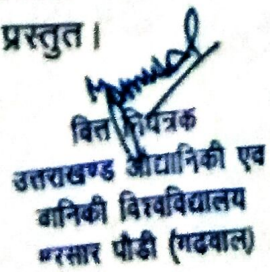 प्रस्तुत।
वित्त नियंत्रक
उत्तराखण्ड औद्यानिकी एव
वानिकी विश्वविद्यालय
भरसार पौडी (गढवाल)